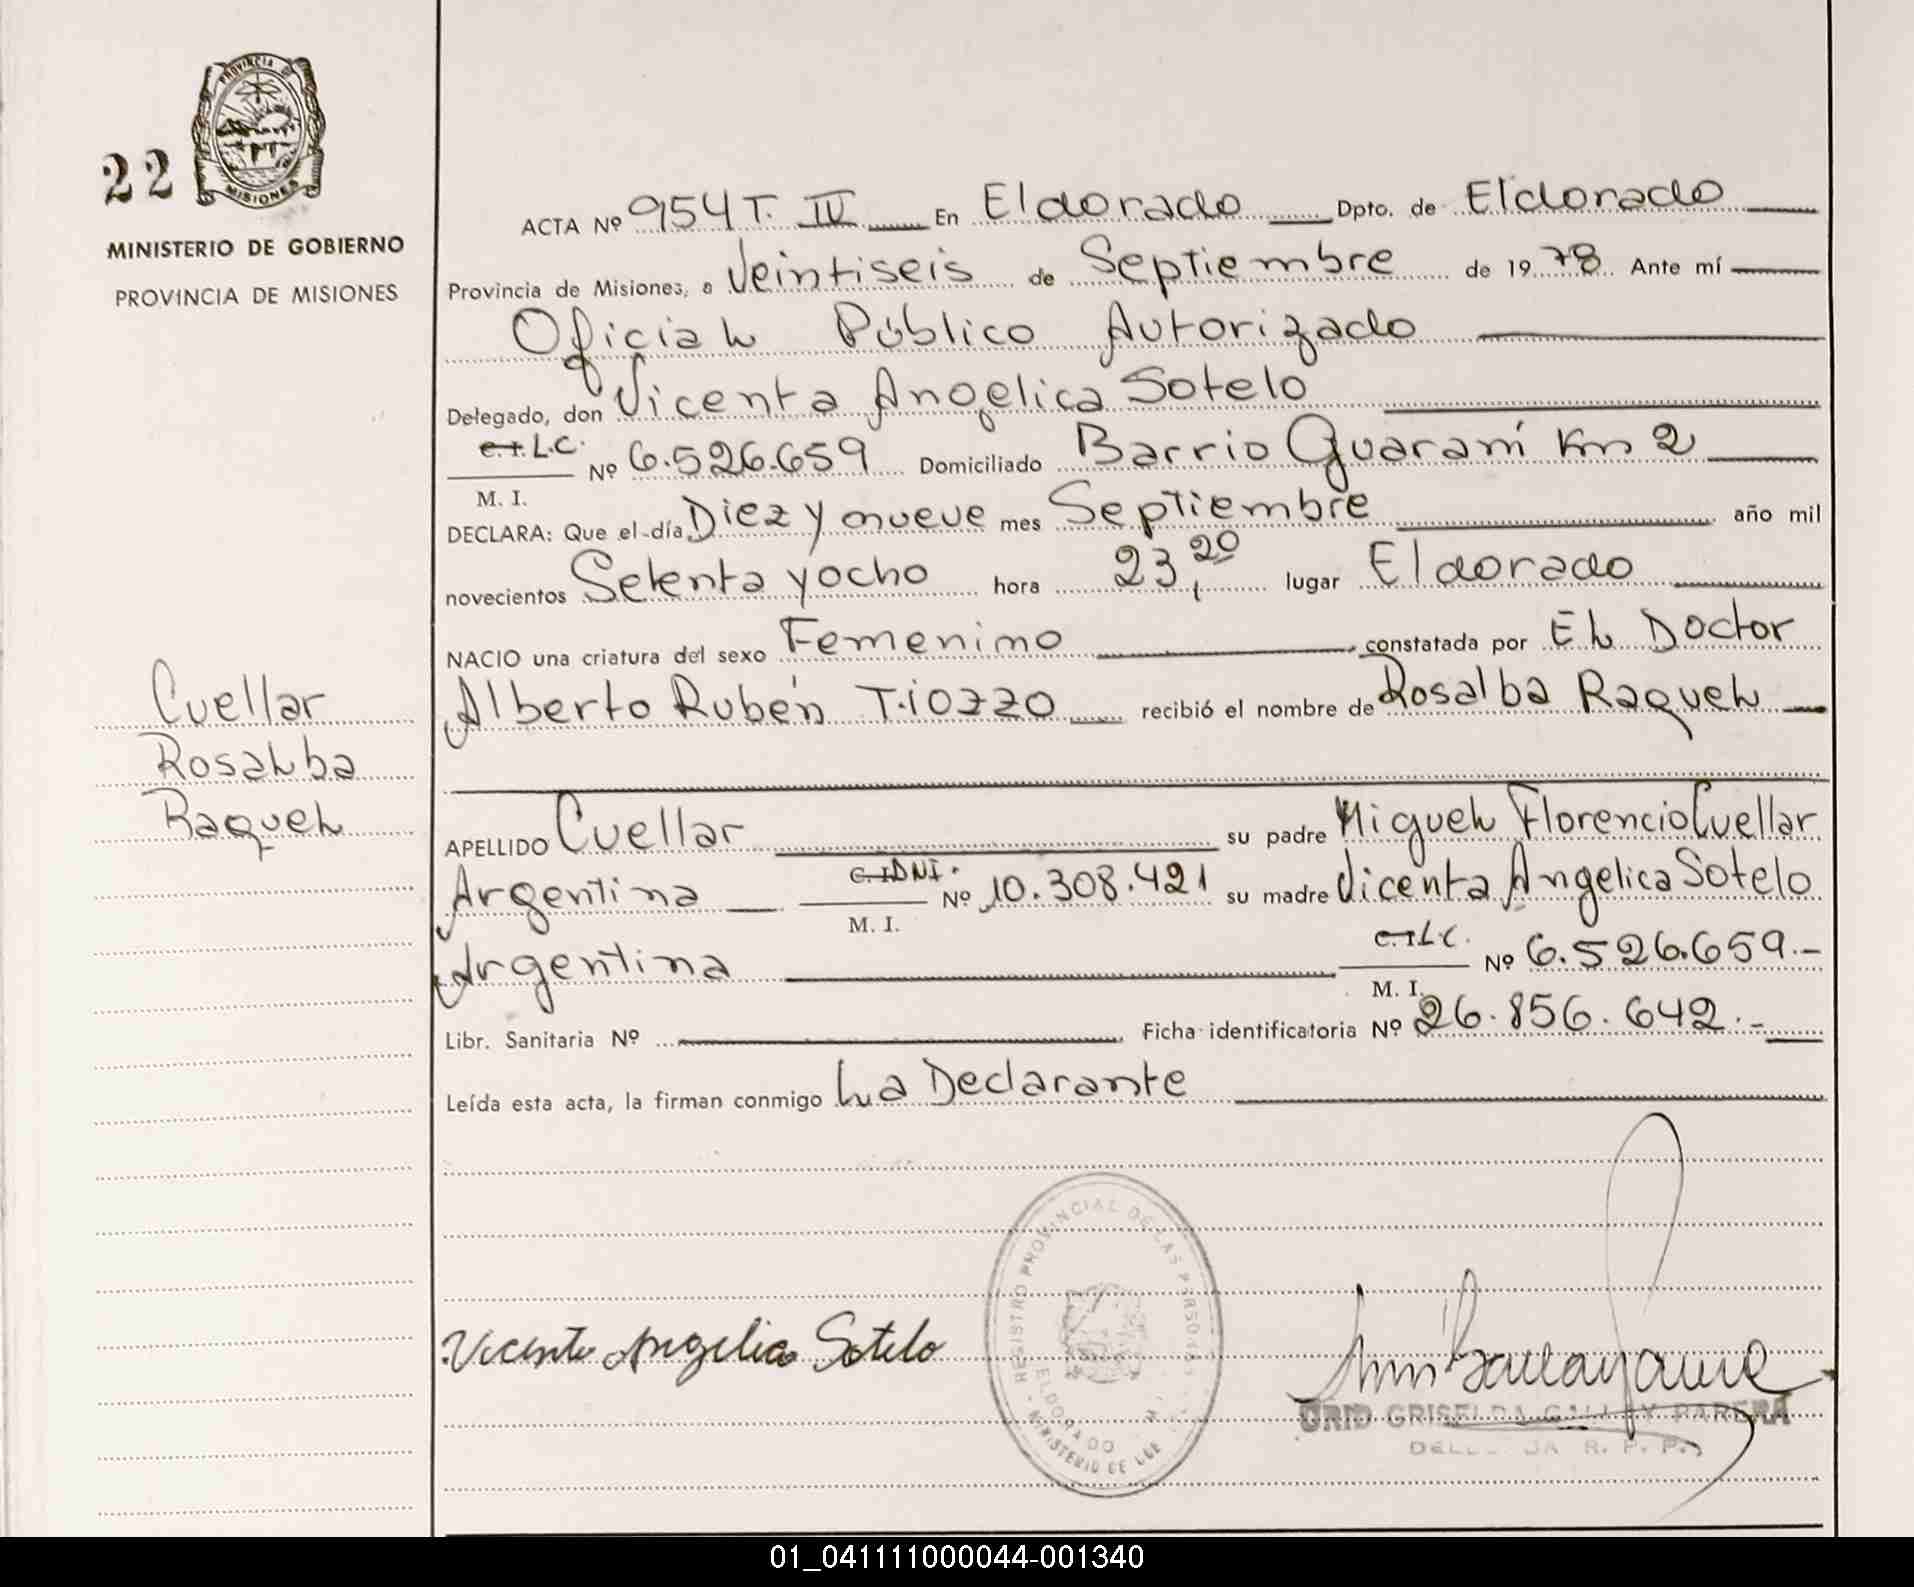 PROVINCIA DE
MISIONES
22
MINISTERIO DE GOBIERNO
PROVINCIA DE MISIONES
Cuellar
Rosalba
Raquel
ACTA Nº 954 T. IV En Eldorado Dpto. de Eldorado
Provincia de Misiones, a Veintiseis de Septiembre de 19 78 Ante mí
Oficial Público Autorizado
Delegado, don Vicenta Angelica Sotelo
C.I. L.C.
M. I. Nº 6.526.659 Domiciliado Barrio Guaraní Km 2
DECLARA: Que el día Diez y nueve mes Septiembre año mil
novecientos Setenta y ocho hora 23,20 lugar Eldorado
NACIO una criatura del sexo Femenino constatada por El Doctor
Alberto Rubén Tiozzo recibió el nombre de Rosalba Raquel
APELLIDO Cuellar su padre Miguel Florencio Cuellar
Argentina C.I. DNI. M. I. Nº 10.308.421 su madre Vicenta Angelica Sotelo
Argentina C.I. L.C. M. I. Nº 6.526.659.-
Libr. Sanitaria Nº Ficha identificatoria Nº 26.856.642.-
Leída esta acta, la firman conmigo La Declarante
REGISTRO PROVINCIAL DE LAS PERSONAS
ELDORADO
MINISTERIO DE
Vicenta Angelica Sotelo
GRISELDA PARERA
R. P. P.
01_041111000044-001340